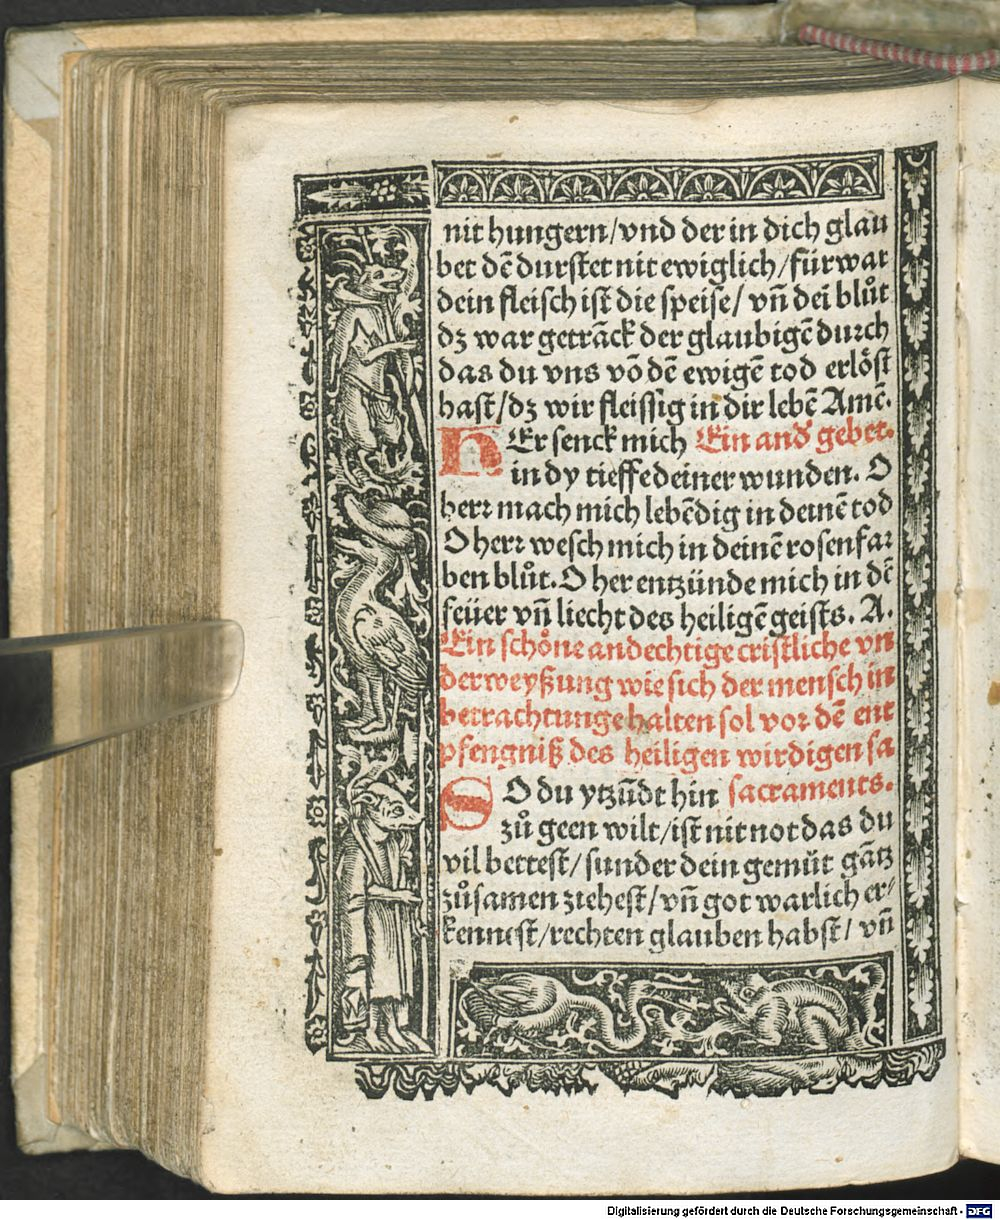 nit hungern/vnd der in dich glau
bet dē durstet nit ewiglich/fürwar
dein fleisch ist die speise/ vñ dei̅ blůt
dz war geträck der glaubigē durch
das du vns vō dē ewigē tod erlöst
hast/dz wir fleissig in dir lebē Amē.
HEr senck mich Ein and̕ gebet.
in dy tieffe deiner wunden. O
herr mach mich lebēdig in deinē tod
O herr wesch mich in deinē rosenfar
ben blůt. O her entzünde mich in dē
feüer vñ liecht des heiligē geists. A.
Ein schöne andechtige cristliche vn
derweyßung wie sich der mensch in
betrachtunge halten sol vor dē ent
pfengniß des heiligen wirdigen sa
SO du ytzūdt hin sacraments.
zů geen wilt/ist nit not das du
vil bettest/sunder dein gemüt gātz
zůsamen ziehest/vñ got warlich er/
kennest/rechten glauben habst/ vñ
Digitalisierung gefördert durch die Deutsche Forschungsgemeinschaft - DFG